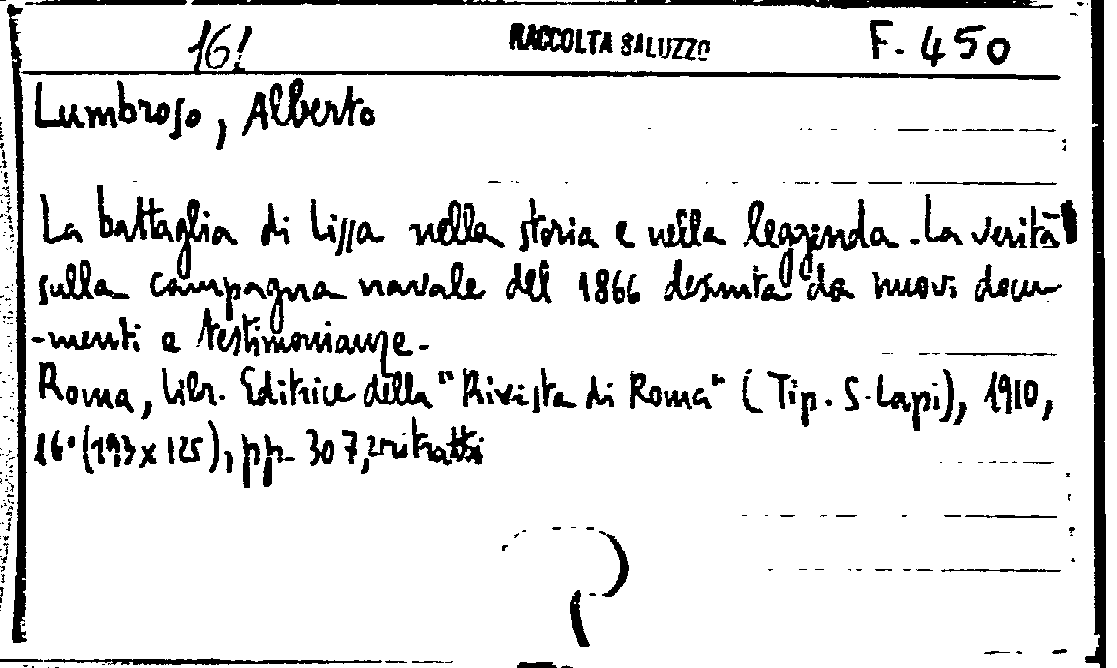 161 RACCOLTA SALUZZO F. 450
Lumbroso, Alberto
La battaglia di Lissa nella storia e nella leggenda. La verità
sulla campagna navale del 1866 desunta da nuovi docu-
-menti e testimonianze.
Roma, Libr. Editrice della "Rivista di Roma" (Tip. S. Lapi), 1910,
16° (193x125), pp. 307, 2 ritratti